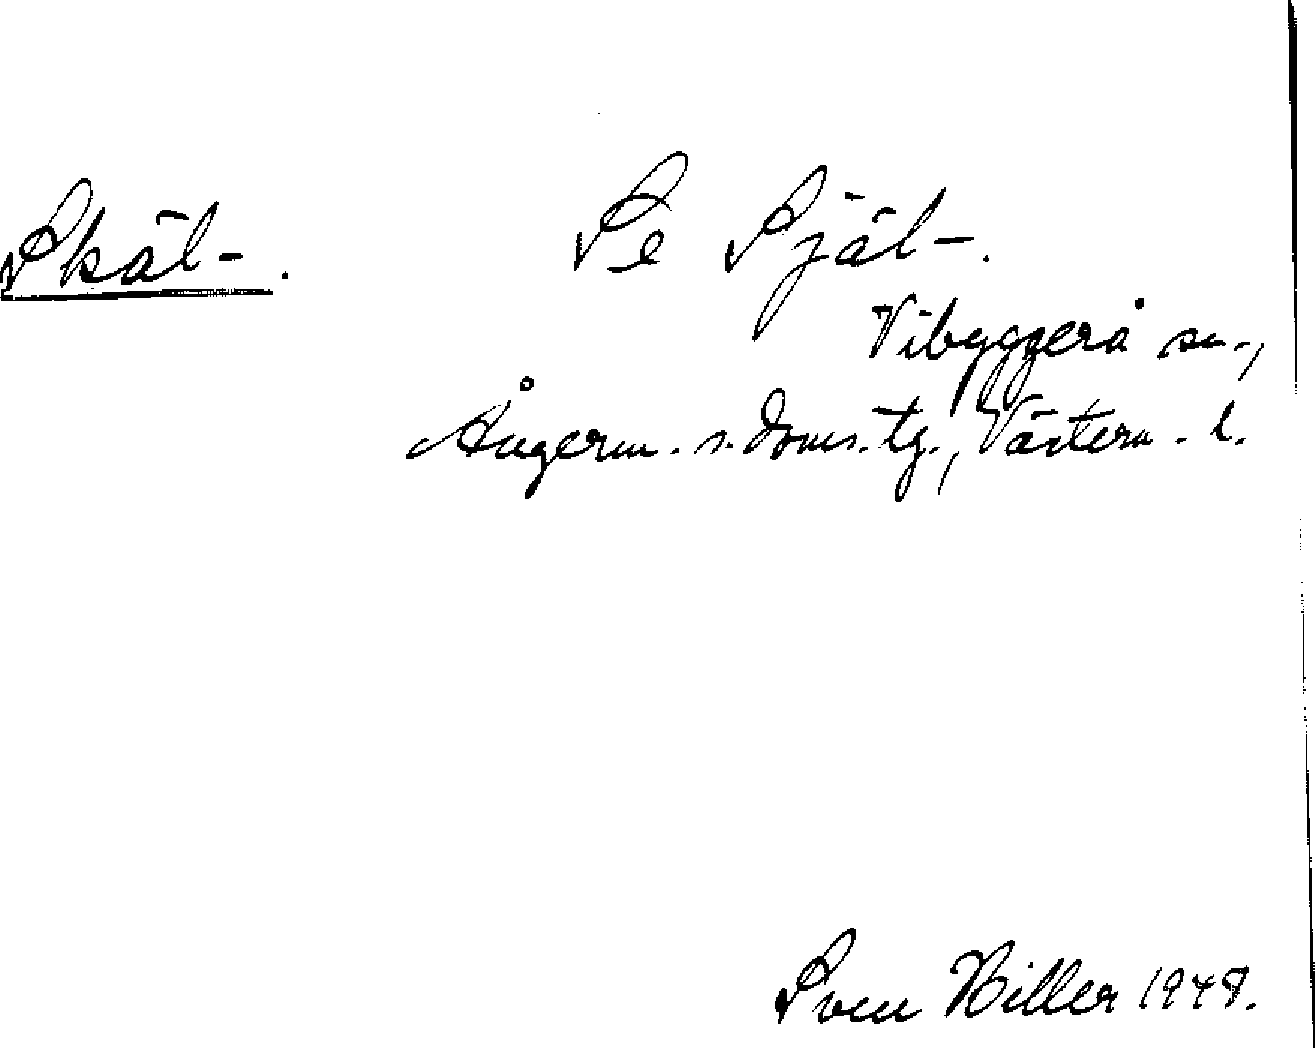 Skäl-. Se Själ-.
Vibyggerå sn.,
Ångerm. s. doms. tg., Västern. l.
Sven Hiller 1948.